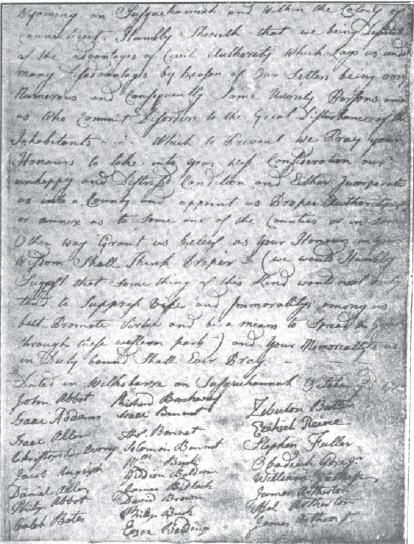 Wyoming on Susquehannah and Within the Colony of
Connecticut Humbly Sheweth that we being
of the advantages of Civil Authority which Lays us under
many Disadvantages by Reason of Our Setlers being very
Numerous and Consequently Some Unruly Persons among
us Who Commit Disorders to the Great Disturbance of the
Inhabitants Which to Prevent we Pray your
Honours to take into your Wise Consideration our
unhappy and Distrest Condition and Either Incorporate
us into a County and appoint us Proper Authority
or annex us to Some one of the Counties or in Some
Other way Grant us Releef as Your Honours in your
Wisdom Shall Think Proper (we would Humbly
Sugest that Some thing of this Kind would not only
tend to Suppress Vise and Immorality among us
but Promote Virtue and be a means to Spread the
through these western parts) and your Memorialists as
in Duty bound Shall Ever Pray
Dated in Wilksbarre on Susquehannah October
John Abbot Richard Zebulon Butler
Isaac Addams Isaac Bennet Ezekiel Peirce
Isaac Allen Bennet Stephen Fuller
Christopher Avery Solomon Bennet Obadiah Gore
Jacob William Buck William
Daniel Gideon Baldwin James Atherton
Philip Abbot James Bidlack Atherton
Caleb Bates David Brown James Atherton Jr
Philip Buck
Ezra Belding